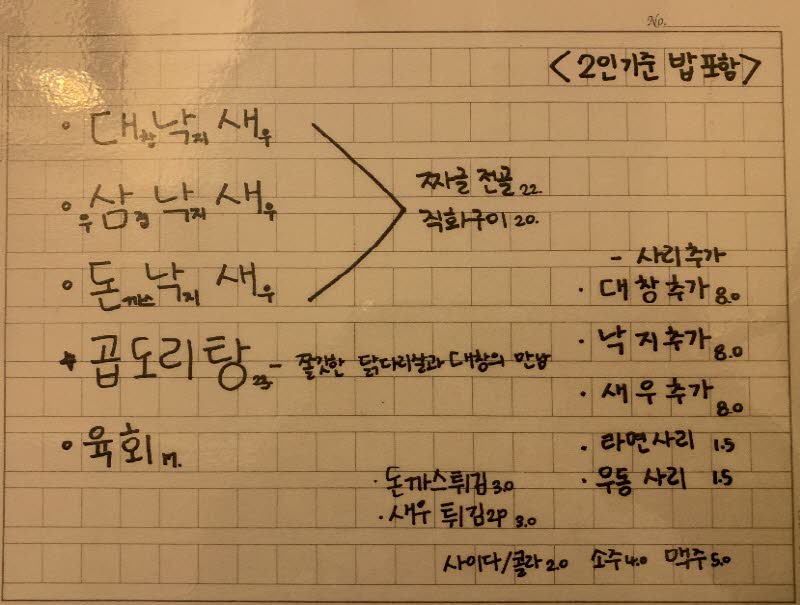 No.
<2인기준 밥 포함>
대창낙지새우
우삼겹낙지새우
돈까스낙지새우
짜글 전골 22.
직화구이 20.
* 곱도리탕 23 - 쫄깃한 닭다리살과 대창의 만남
육회 17.
- 사리추가
· 대창추가 8.0
· 낙지추가 8.0
· 새우추가 8.0
· 라면사리 1.5
· 우동 사리 1.5
· 돈까스튀김 3.0
· 새우 튀김2p 3.0
사이다/콜라 2.0 소주 4.0 맥주 5.0